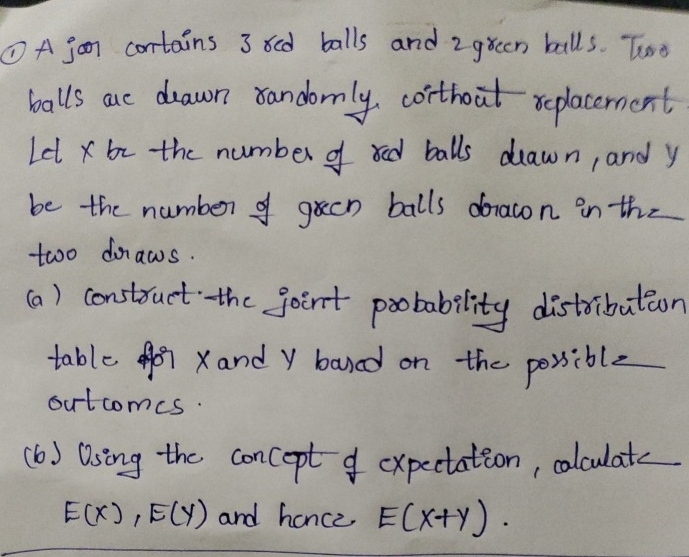 ① A jar contains 3 red balls and 2 green balls. Two
balls are drawn randomly, without replacement.
Let X be the number of red balls drawn, and y
be the number of green balls drawn in the
two draws.
(a) Construct the joint probability distribution
table for X and Y based on the possible
outcomes.
(b) Using the concept of expectation, calculate
E(X), E(Y) and hence E(X+Y).